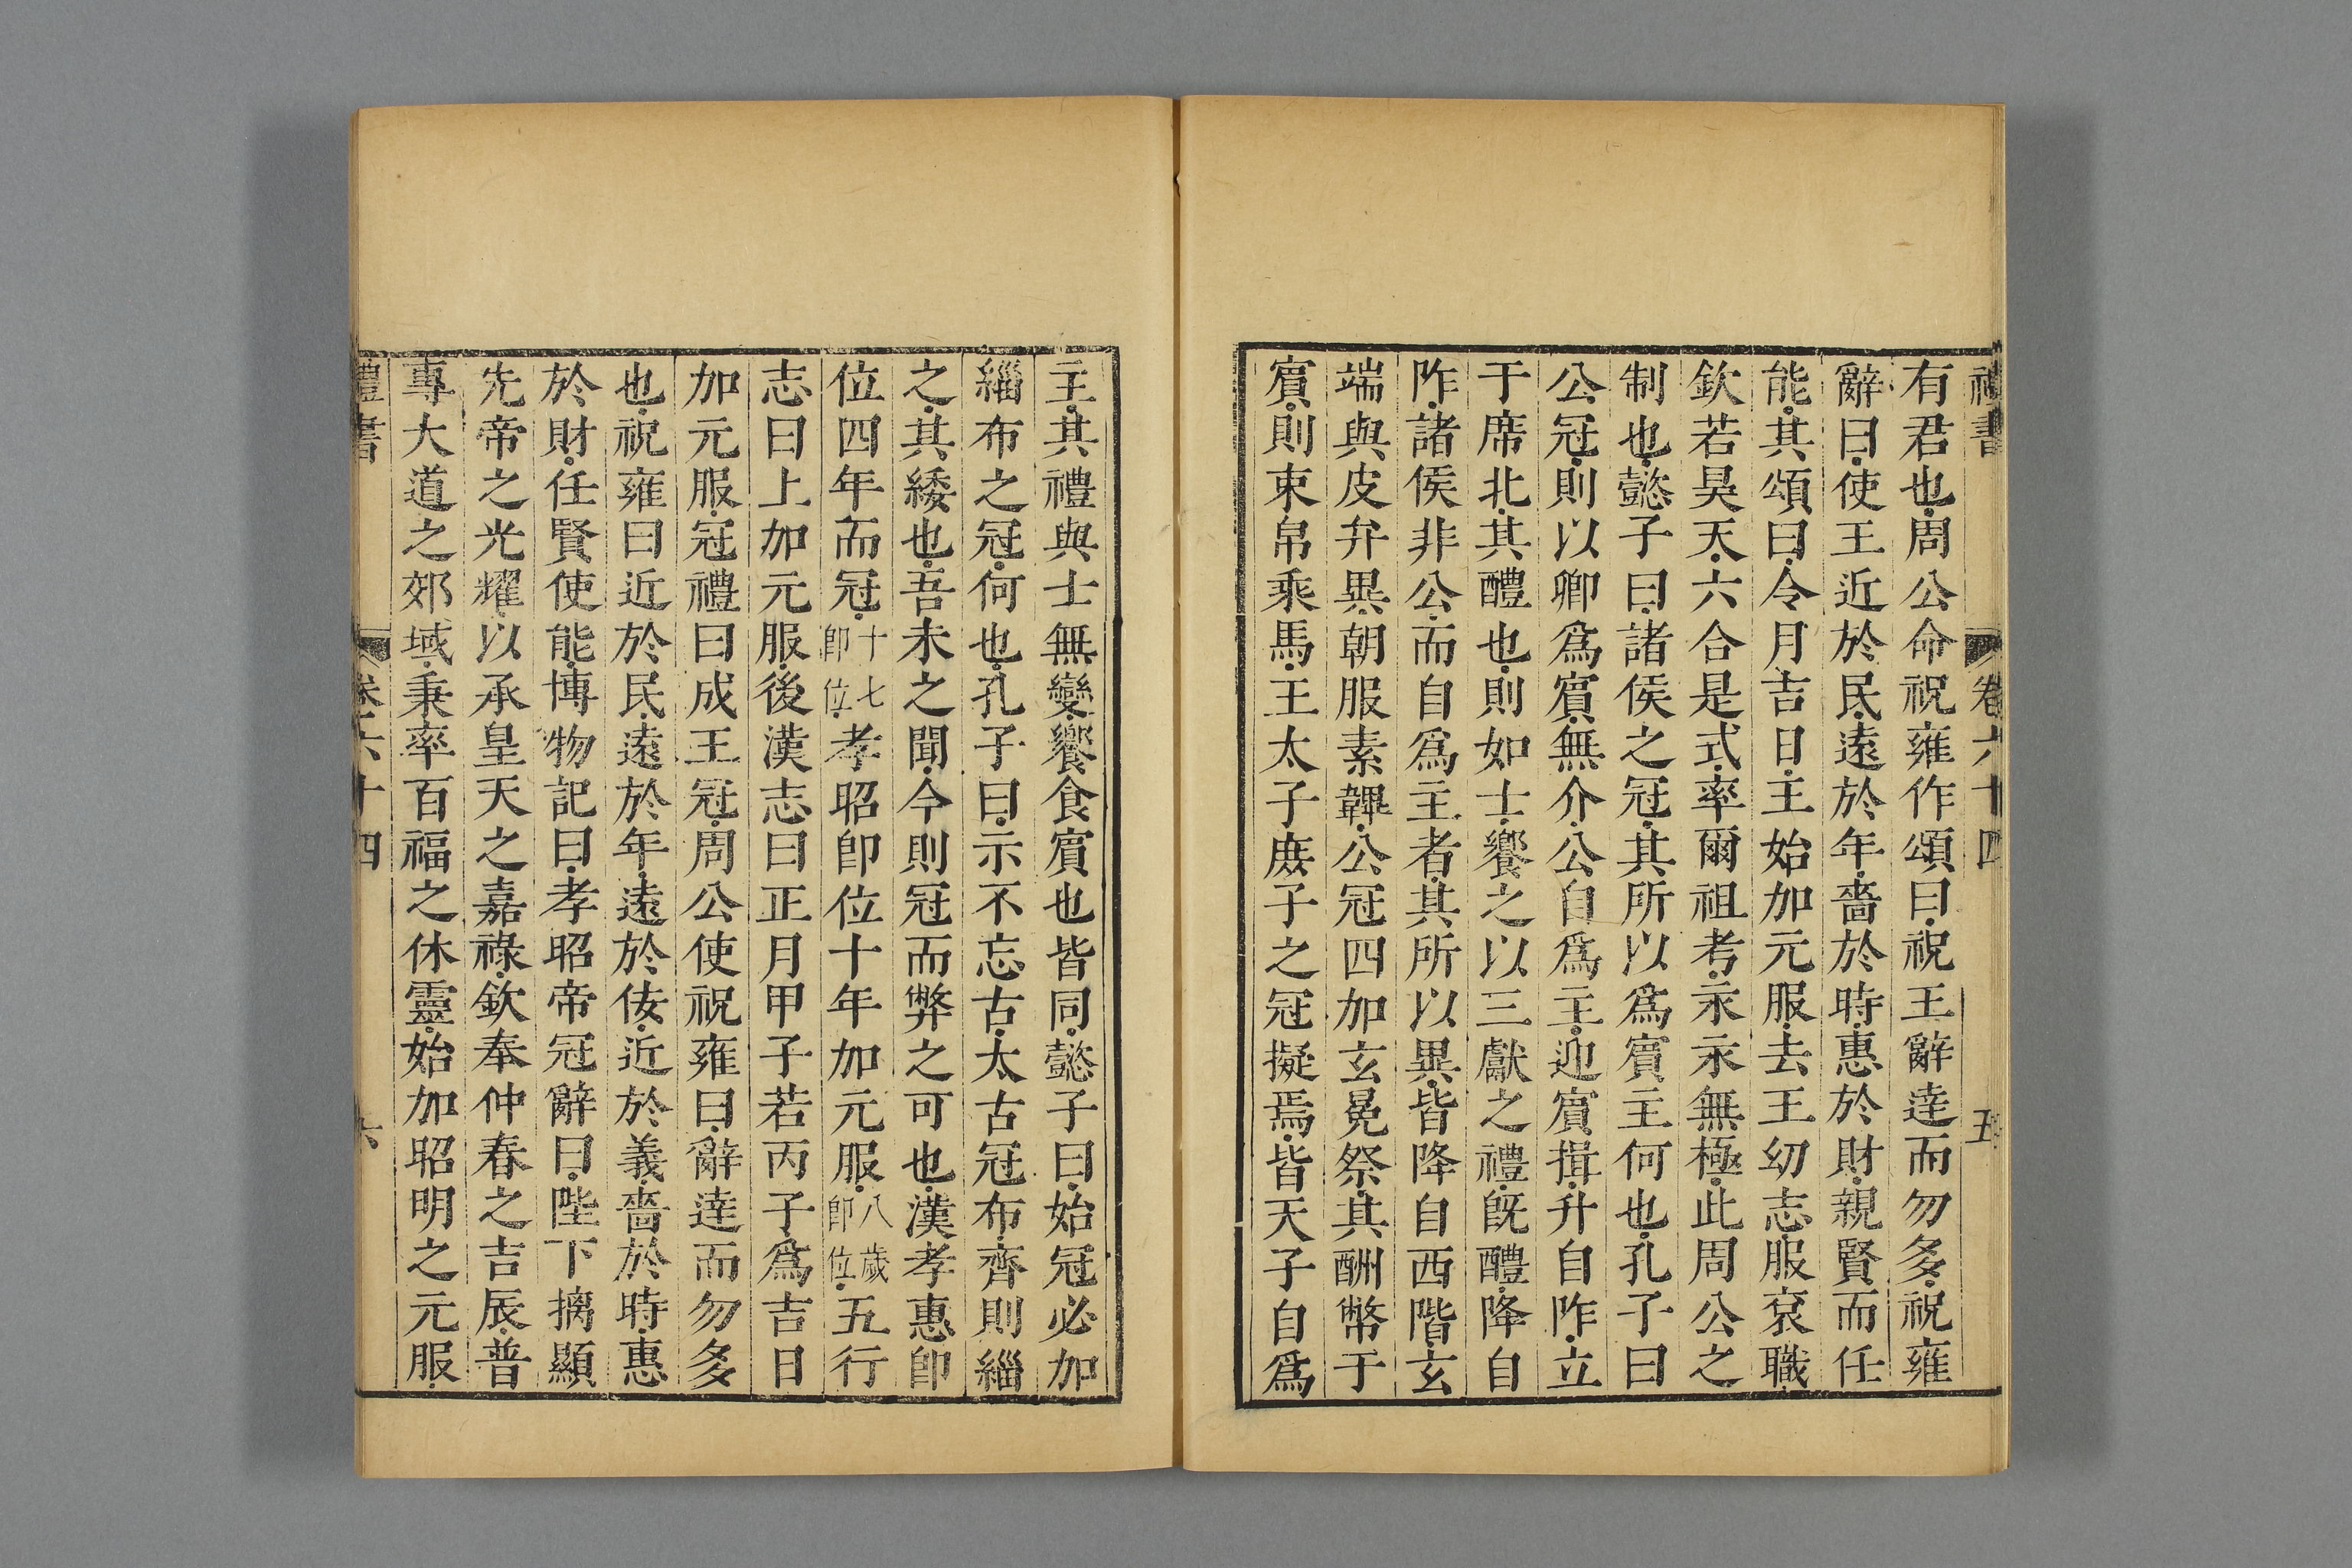 禮書 卷六十四 五
有君也周公命祝雍作頌曰祝王辭達而勿多祝雍
辭曰使王近於民遠於年嗇於時惠於財親賢而任
能其頌曰令月吉日王始加元服去王幼志服袞職
欽若昊天六合是式率爾祖考永永無極此周公之
制也懿子曰諸侯之冠其所以爲賓主何也孔子曰
公冠則以卿爲賓無介公自爲主迎賓揖升自阼立
于席北其醴也則如士饗之以三獻之禮旣醴降自
阼諸侯非公而自爲主者其所以異皆降自西階玄
端與皮弁異朝服素韠公冠四加玄冕祭其酬幣于
賓則束帛乘馬王太子庶子之冠擬焉皆天子自爲
主其禮與士無變饗食賓也皆同懿子曰始冠必加
緇布之冠何也孔子曰示不忘古太古冠布齊則緇
之其緌也吾未之聞今則冠而弊之可也漢孝惠卽
位四年而冠十七卽位孝昭卽位十年加元服八歲卽位五行
志曰上加元服後漢志曰正月甲子若丙子爲吉日
加元服冠禮曰成王冠周公使祝雍曰辭達而勿多
也祝雍曰近於民遠於年遠於佞近於義嗇於時惠
於財任賢使能博物記曰孝昭帝冠辭曰陛下摛顯
先帝之光耀以承皇天之嘉祿欽奉仲春之吉辰普
專大道之郊域秉率百福之休靈始加昭明之元服
禮書 卷六十四 六